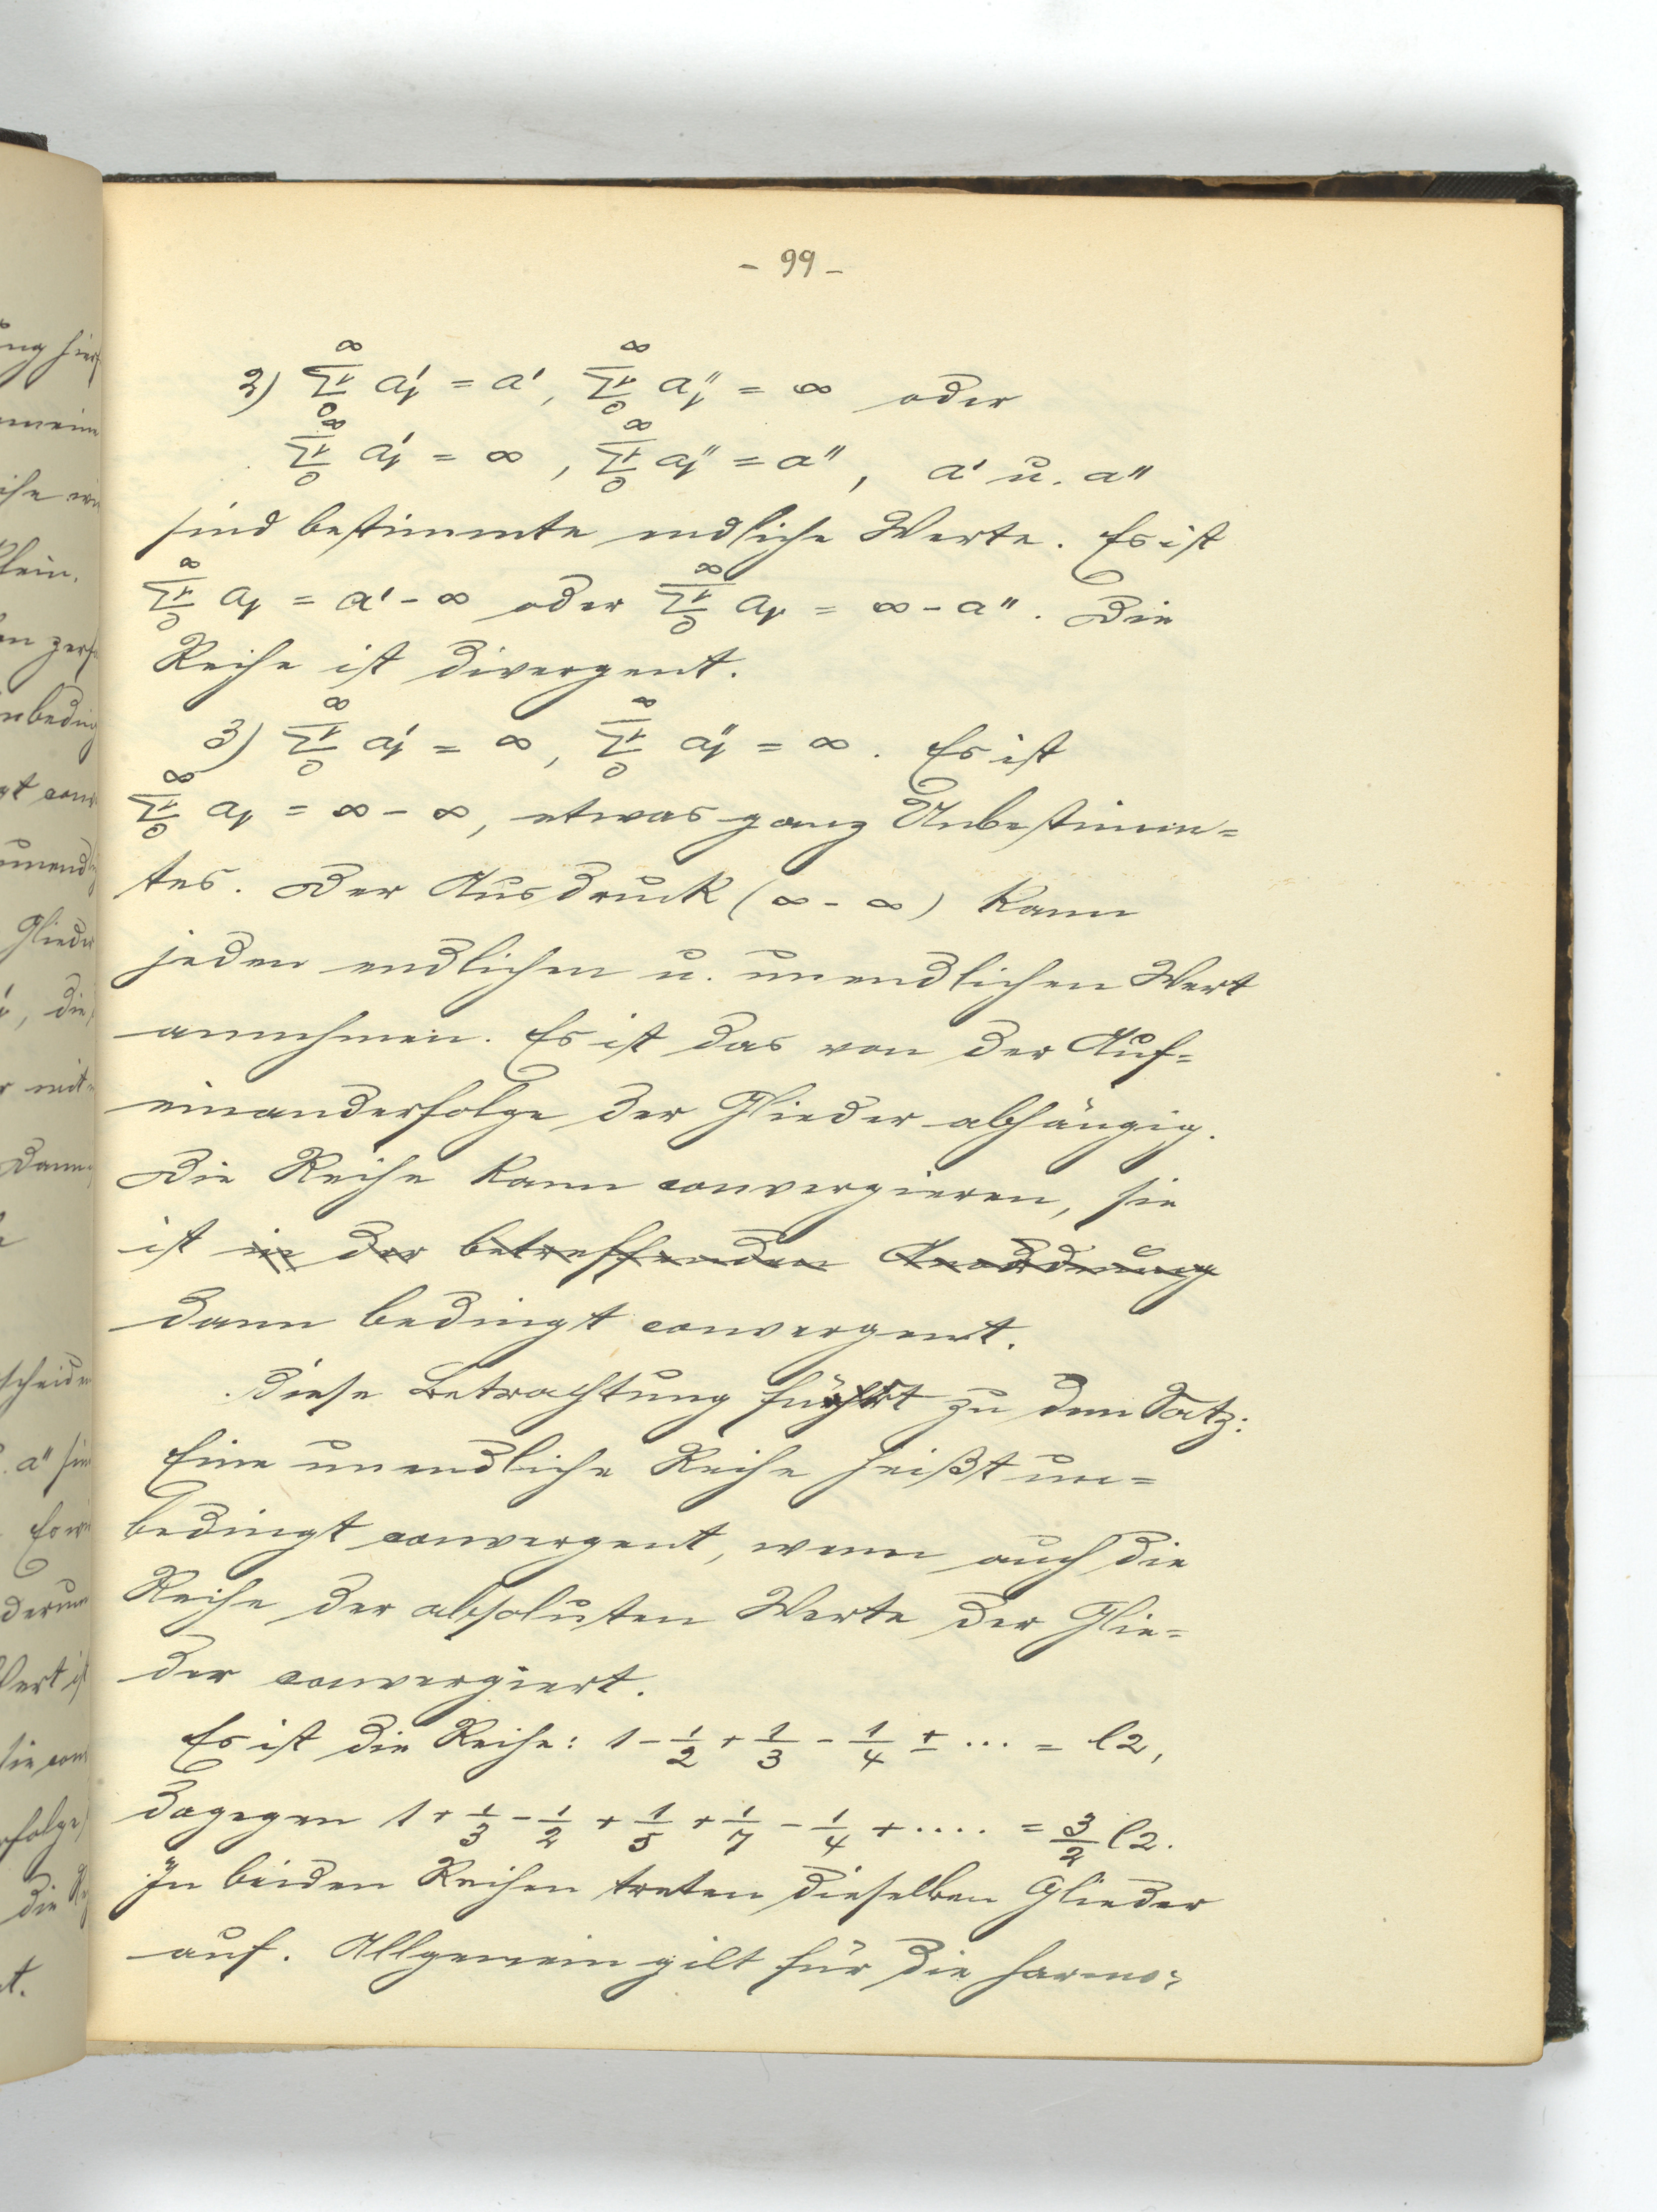 - 99 -
2) ∞∑ν0 a'ν = a', ∞∑ν0 a''ν = ∞ oder
∞∑ν0 a'ν = ∞, ∞∑ν0 a''ν = a'', a' u. a''
sind bestimmte endliche Werte. Es ist
∞∑ν0 aν = a' - ∞ oder ∞∑ν0 aν = ∞ - a''. Die
Reihe ist divergent.
3) ∞∑ν0 a'ν = ∞, ∞∑ν0 a''ν = ∞. Es ist
∞∑ν0 aν = ∞ - ∞, etwas ganz Unbestimm=
tes. Der Ausdruck (∞ - ∞) kann
jeden endlichen u. unendlichen Wert
annehmen. Es ist das von der Auf=
einanderfolge der Glieder abhängig.
Die Reihe kann convergieren, sie
ist in der betreffenden Anordnung
dann bedingt convergent.
Diese Betrachtung führt zu dem Satz:
Eine unendliche Reihe heißt un=
bedingt convergent, wenn auch die
Reihe der absoluten Werte der Glie=
der convergiert.
Es ist die Reihe: 1 - 1/2 + 1/3 - 1/4 ± ... = l2,
dagegen 1 + 1/3 - 1/2 + 1/5 + 1/7 - 1/4 + .... = 3/2 l2.
In beiden Reihen treten dieselben Glieder
auf. Allgemein gilt für die harmo=